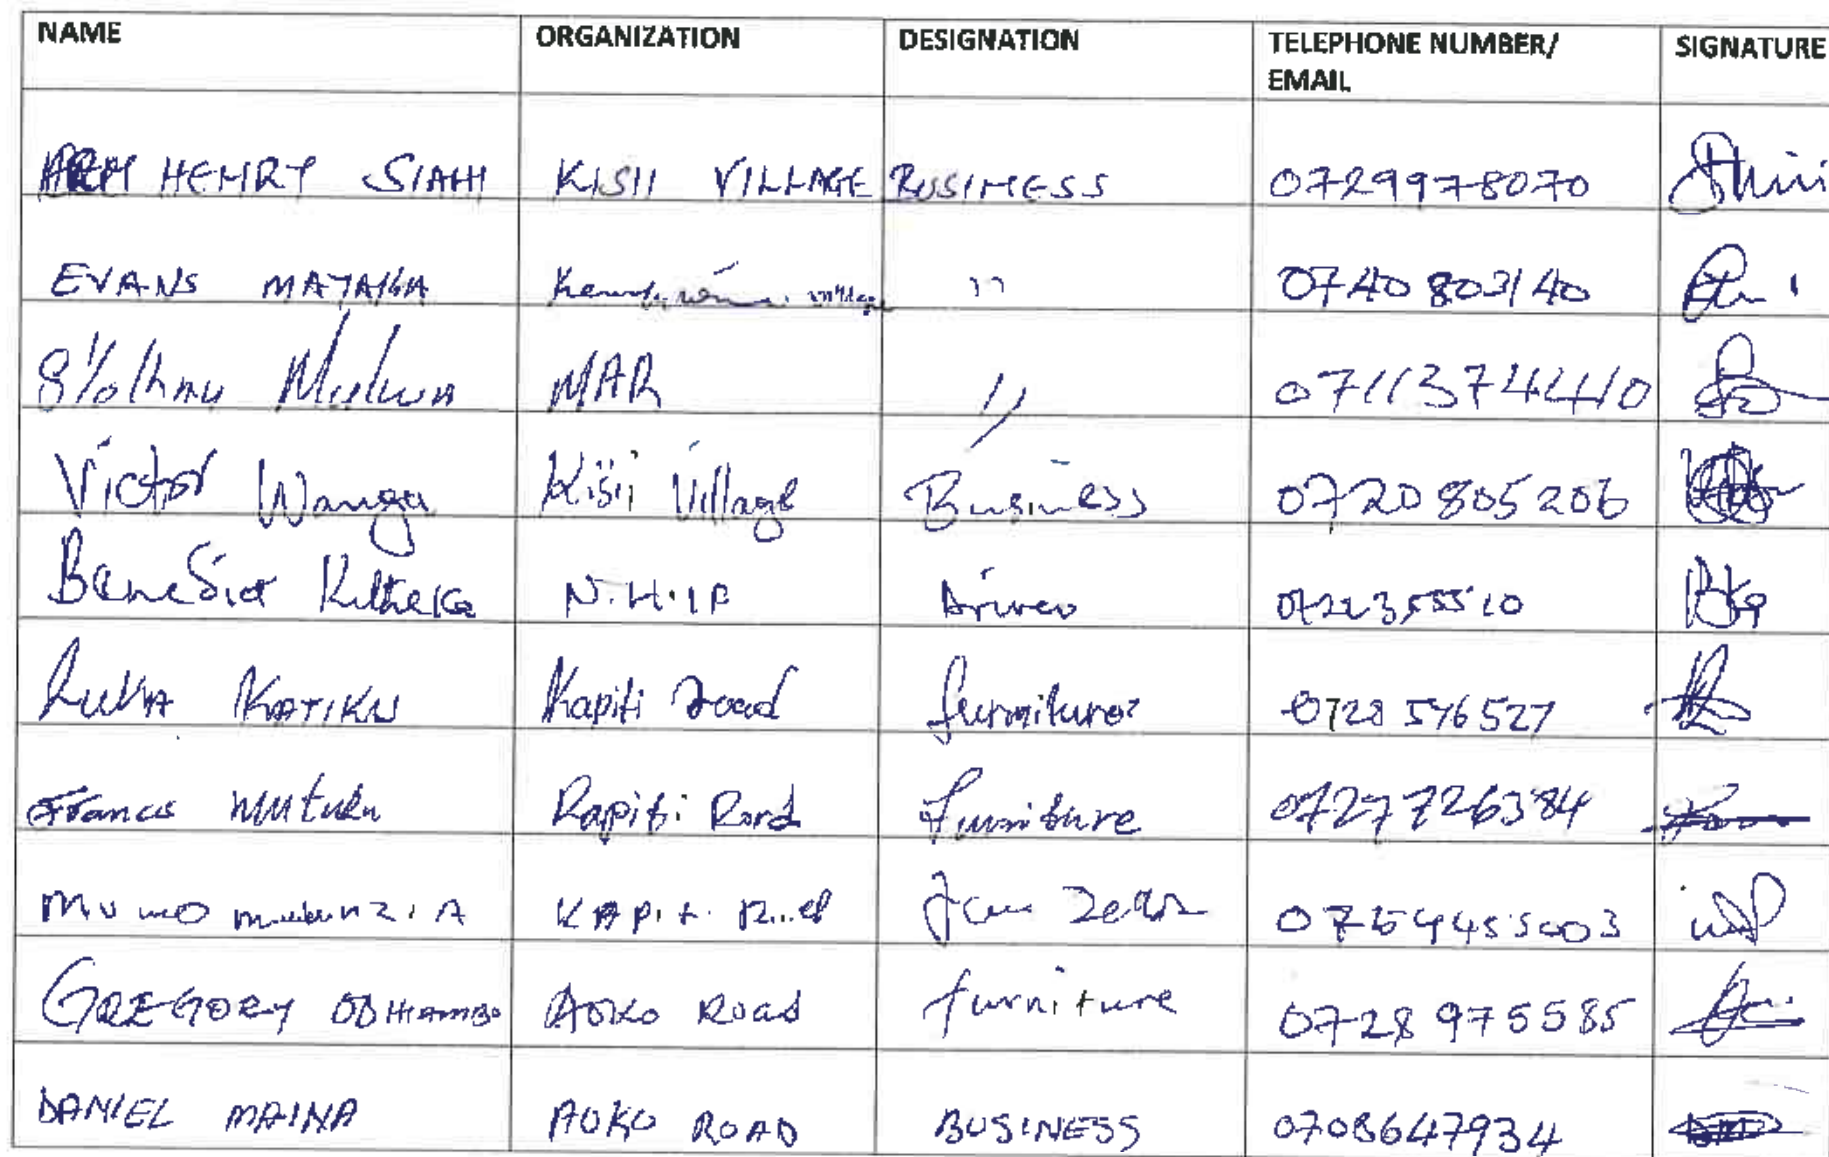 NAME ORGANIZATION DESIGNATION TELEPHONE NUMBER/ SIGNATURE
EMAIL
HENRY SIAHI KISII VILLAGE BUSINESS 0729978070
EVANS MATAKA village " 0740803140
MAR " 0711374440
Victor Wanga Kisii Village Business 0720805206
Benedict Kitheka N.H.I.F Driver 0722355510
Luka KATIKU Kapiti Road furniture 0728576527
Francis Mutuku Kapiti Road Furniture 0727726384
Mumo KAPiti Road
GREGORY ODHIAMBO AOKO Road furniture 0728975585
DANIEL MAINA AOKO ROAD BUSINESS 0708647934